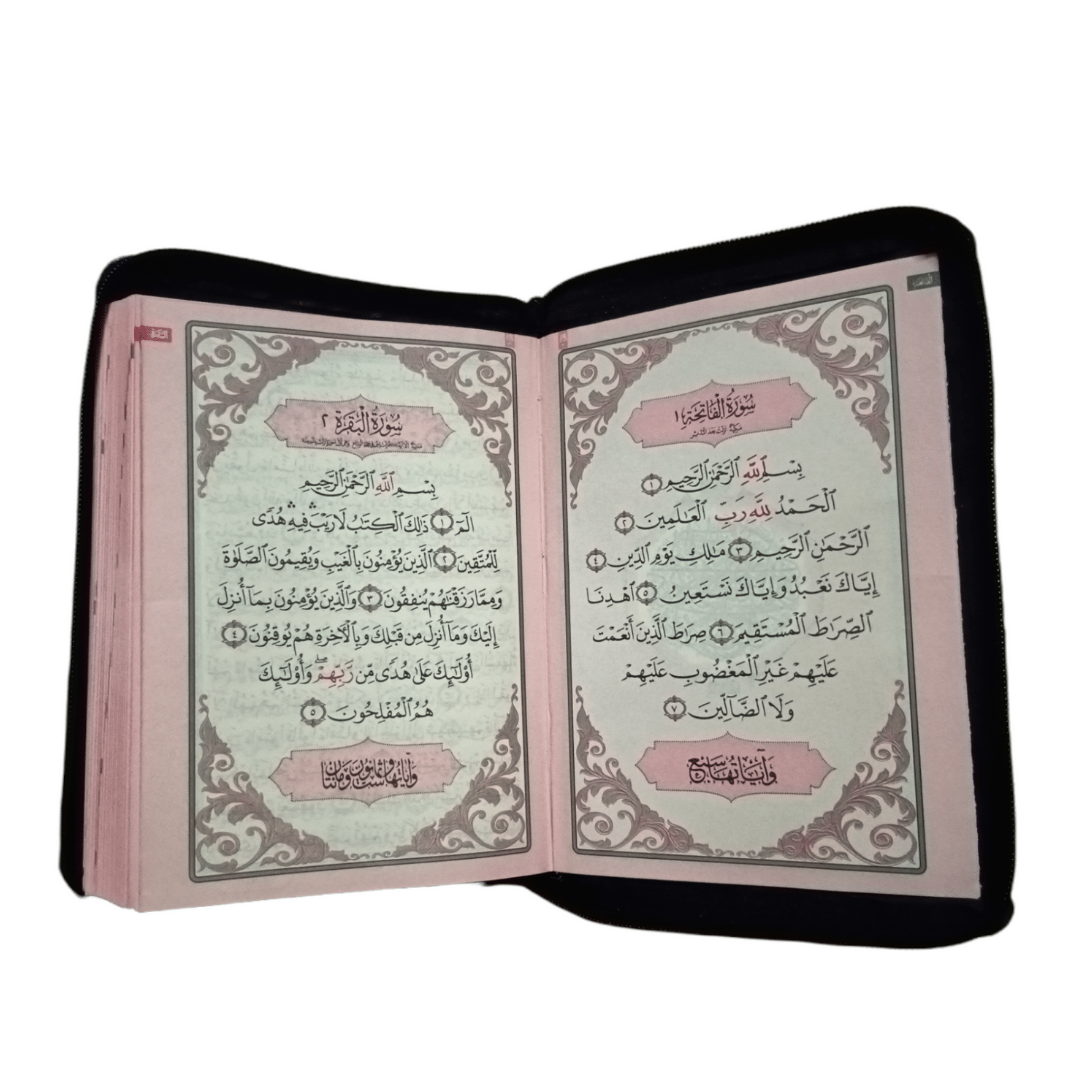 سُورَةُ ٱلْفَاتِحَةِ ١
بِسْمِ ٱللَّهِ ٱلرَّحْمَٰنِ ٱلرَّحِيمِ ١
ٱلْحَمْدُ لِلَّهِ رَبِّ ٱلْعَٰلَمِينَ ٢
ٱلرَّحْمَٰنِ ٱلرَّحِيمِ ٣ مَٰلِكِ يَوْمِ ٱلدِّينِ ٤
إِيَّاكَ نَعْبُدُ وَإِيَّاكَ نَسْتَعِينُ ٥ ٱهْدِنَا
ٱلصِّرَٰطَ ٱلْمُسْتَقِيمَ ٦ صِرَٰطَ ٱلَّذِينَ أَنْعَمْتَ
عَلَيْهِمْ غَيْرِ ٱلْمَغْضُوبِ عَلَيْهِمْ
وَلَا ٱلضَّآلِّينَ ٧
وَآيَاتُهَا سَبْعٌ
سُورَةُ ٱلْبَقَرَةِ ٢
بِسْمِ ٱللَّهِ ٱلرَّحْمَٰنِ ٱلرَّحِيمِ
الٓمٓ ١ ذَٰلِكَ ٱلْكِتَٰبُ لَا رَيْبَ ۛ فِيهِ ۛ هُدًى
لِّلْمُتَّقِينَ ٢ ٱلَّذِينَ يُؤْمِنُونَ بِٱلْغَيْبِ وَيُقِيمُونَ ٱلصَّلَوٰةَ
وَمِمَّا رَزَقْنَٰهُمْ يُنفِقُونَ ٣ وَٱلَّذِينَ يُؤْمِنُونَ بِمَآ أُنزِلَ
إِلَيْكَ وَمَآ أُنزِلَ مِن قَبْلِكَ وَبِٱلْءَاخِرَةِ هُمْ يُوقِنُونَ ٤
أُو۟لَٰٓئِكَ عَلَىٰ هُدًى مِّن رَّبِّهِمْ ۖ وَأُو۟لَٰٓئِكَ
هُمُ ٱلْمُفْلِحُونَ ٥
وَآيَاتُهَا سِتٌّ وَثَمَانُونَ وَمِائَتَانِ